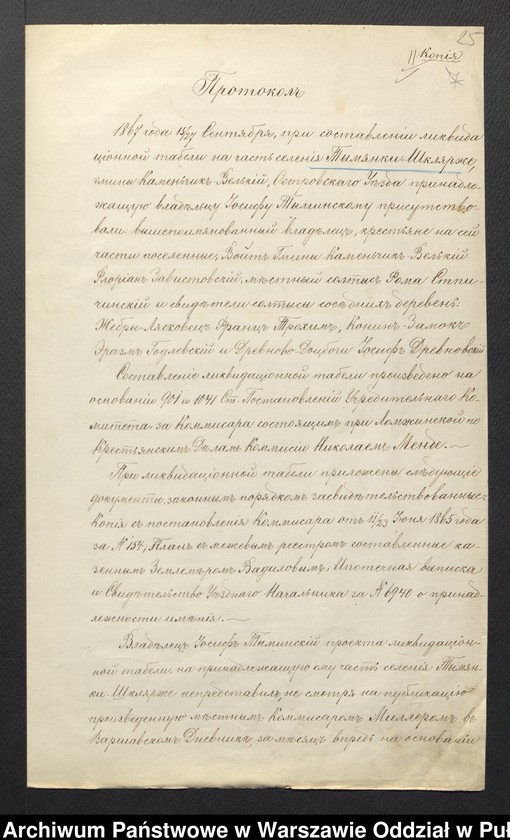 25
Копія
Протоколъ
1867 года 15/27 Сентября, при составленіи ликвида
ціонной табели на часть селенія Тымянки-Шклярже,
гмины Каменьчикъ-Велькій, Островскаго Уѣзда принадле-
жащую владѣльцу Іосифу Тыминскому присутство-
вали: вышепоимянованный владѣлецъ, крестьяне на сей
части поселенные, Войтъ Гмины Каменьчикъ-Велькій
Флоріанъ Завистовскій, мѣстный солтысъ Рома
чинскій и свидѣтели солтысы сосѣднихъ деревень:
Жебры-Лясковецъ Францъ Трохимъ, Конинъ-Замокъ
Эразмъ Годлевскій и Древново-Доцбоги Іосифъ Древновскій
Составленіе ликвидаціонной табели произведено на
основаніи 901 и 1041 Ст. Постановленій Учредительнаго Ко-
митета за Коммисара состоящимъ при Ломжинской по
Крестьянскимъ Дѣламъ Коммисіи Николаемъ Менде. —
При ликвидаціонной табели приложены слѣдующіе
документы, законнымъ порядкомъ засвидѣтельствованные:
Копія съ постановленія Коммисара отъ 11/23 Іюня 1865 года
за № 154, Планъ съ межевымъ реестромъ составленные ка-
зеннымъ Землемѣромъ Вадиловымъ, Ипотечная выписка
и Свидѣтельство Уѣзднаго Начальника за № 6940 о принад-
лежности имѣнія. —
Владѣлецъ Іосифъ Тыминскій проекта ликвидаціон-
ной табели на принадлежащую ему часть селенія Тымян-
ки-Шклярже непредставилъ, не смотря на публикацію
произведенную мѣстнымъ Коммисаромъ Миллеромъ въ
Варшавскомъ Дневникѣ, за мѣсяцъ впредь на основаніи
Archiwum Państwowe w Warszawie Oddział w Puł